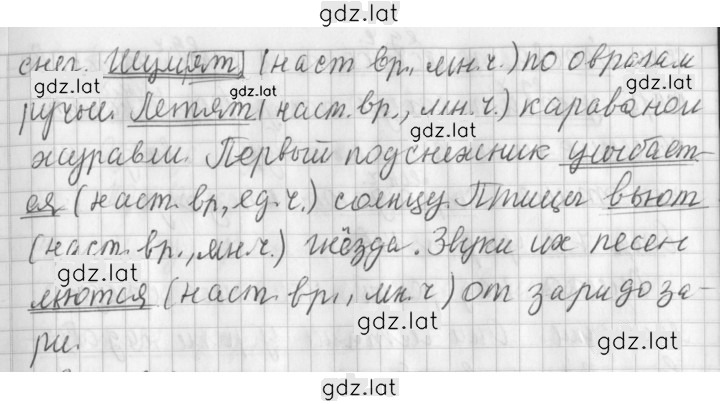 gdz.lat
снег. Шумят (наст вр., мн.ч.) по оврагам
gdz.lat gdz.lat gdz.lat
ручьи. Летят (наст. вр., мн.ч.) караваном
gdz.lat
журавли. Первый подснежник улыбает-
gdz.lat gdz.lat
ся (наст. вр, ед.ч.) солнцу. Птицы вьют
(наст. вр., мн.ч.) гнёзда. Звуки их песен
gdz.lat
льются (наст. вр., мн.ч) от зари до за-
gdz.lat gdz.lat
ри.
gdz.lat